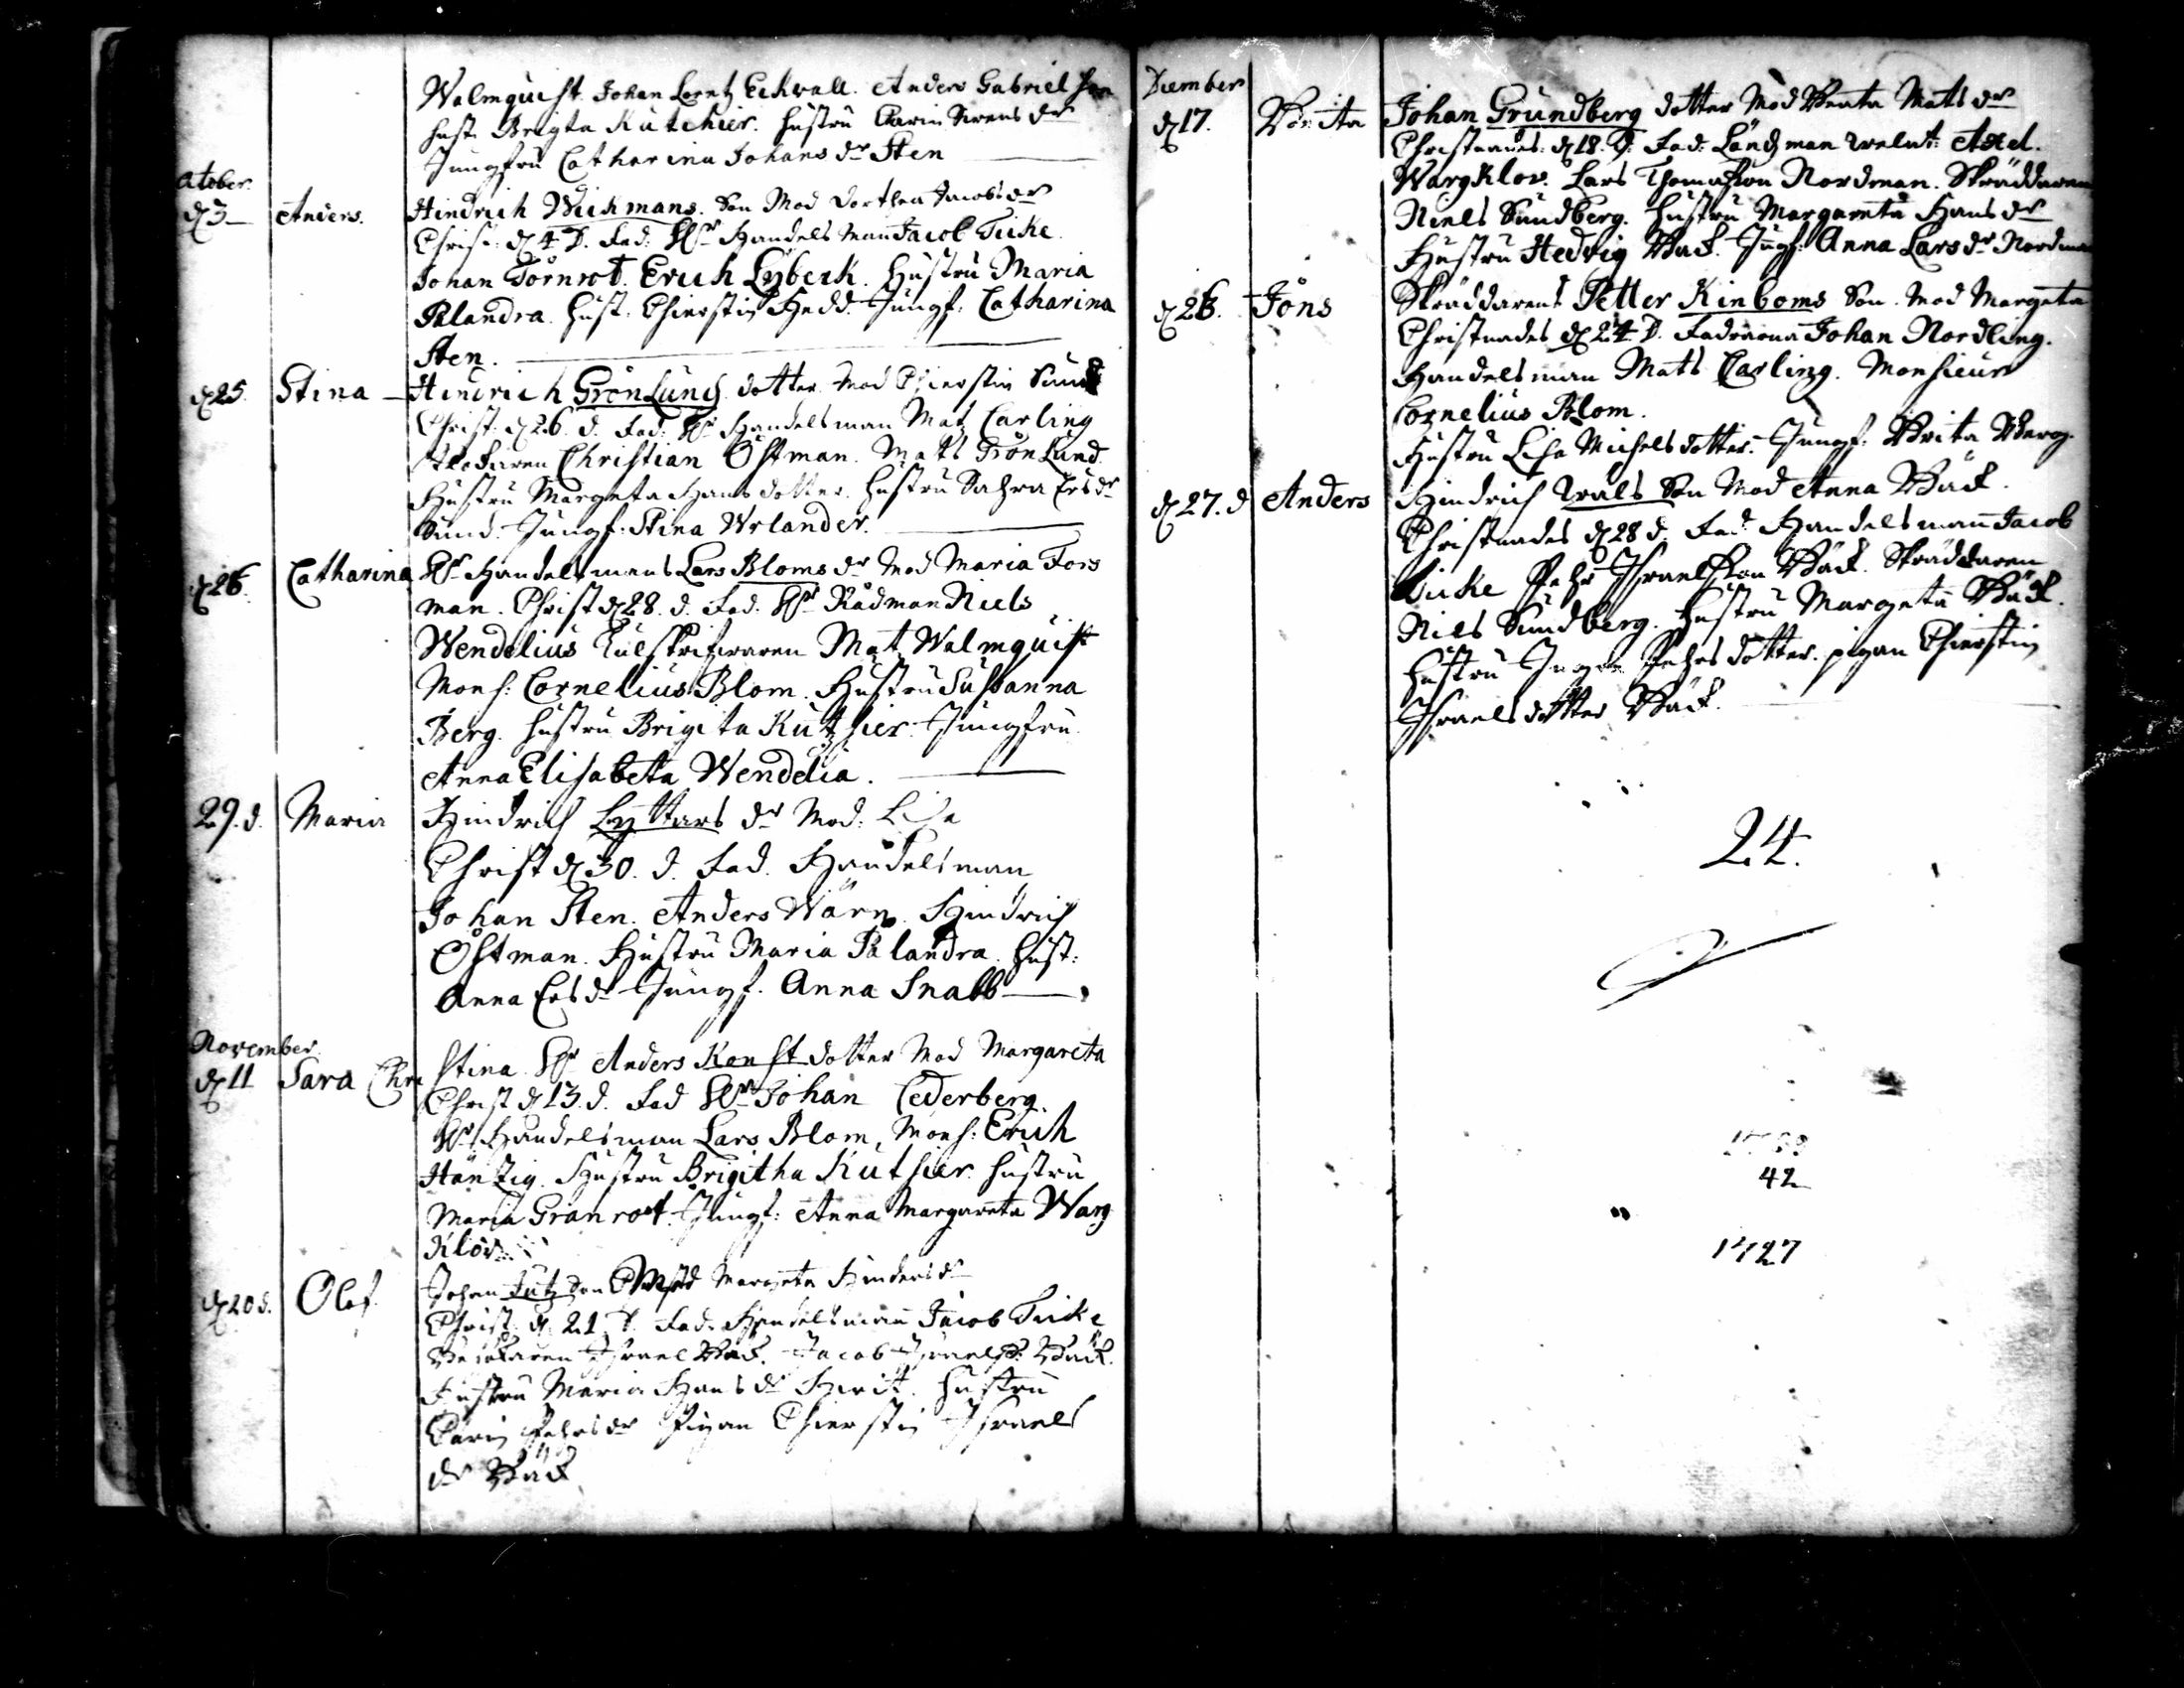 Walmquist. Johan Lorentz Eckvall. Anders Gabrielson
hust. Brigta Kutchier. hustru Carin Svens dr
Jungfru Catharina Johans dr Sten
October
d 3 Anders. Hindrich Wickmans. Son Mod Dorthea Jacobs dr
Christ: d 4 D. Fad: Hr Handelsman Jacob Ticke.
Johan Törnrot. Erich Lÿberk. Hustru Maria
Palandra. hust. Chierstin Hedd. Jungf: Catharina
Sten.
d 25. Stina Hindrich Grönlund dotter. Mod Chierstin Sund
Christ. d 26. d. Fad: Hr Handelsman Matz Carling
Christian Östman. Matts Grönlund.
Hustru Margeta Hansdotter. hustru Sahra Ers dr
Sund. Jungf. Stina Wrlander.
d 26. Catharina Hr Handelsmans Lars Bloms dr Mod Maria Fors
man. Christ d 28. d. Fad. Hr Rådman Niels
Wendelius Tulskrifwaren Matz Walmquist
Mons: Cornelius Blom. Hustru Susanna
Berg. hustru Brigita Kutzhier. Jungfru
Anna Elisabeta Wendelia.
29. d. Maria Hindrich Lyttars dr Mod: Lisa
Christ d 30. d. Fad. Handelsman
Johan Sten. Anders Wärn. Hindrich
Östman. Hustru Maria Palandra. hust:
Anna Ers dr Jungf. Anna Snabb
November
d 11 Sara Chri stina Hr Anders Konst dotter Mod Margareta
Christ d 13. d. Fad Hr Johan Cederberg.
Hr Handelsman Lars Blom, Mons: Erich
Häntzig. Hustru Brigitha Kuthier. hustru
Maria Granrot. Jungf: Anna Margareta Warg
Klöv.
d 20 d. Olof Johan Jutz Son Mod Margeta Hinders dr
Christ. d. 21. D. Fad. Handelsman Jacob Ticke
Israel Bäck. Jacob Israels: Bäck.
Hustru Maria Hans dr hustru
Carin Pehrs dr Pigan Chierstin Israels
dr Bäck
December
d 17. Brita Johan Grundberg dotter Mod Beata Mats dr
Christnades: d 18. D. Fad: Länsman welat: Axel.
Wargklov. Lars Thomasson Nordman. Skräddaren
Niels Sundberg. Hustru Margareta Hans dr
Hustru Hedvig Bäck. Jungf: Anna Lars dr Nordman
d 23. Jöns Skräddarens Petter Kinboms Son. Mod Margeta
Christnades d 24 D. Faddrarna Johan Nordling.
Handelsman Mats Carling. Monsieur
Cornelius Blom.
Hustru Lisa Michelsdotter. Jungf: Brita Berg.
d 27. d Anders Hindrich Wals Son Mod Anna Bäck.
Christnades d 28 d. Fad: Handelsman Jacob
Ticke Pehr Israelsson Bäck. Skräddaren
Nils Sundberg. Hustru Margeta Bäck.
Hustru Pehrsdotter. pigan Chierstin
Israelsdotter Bäck.
24.
42
1727